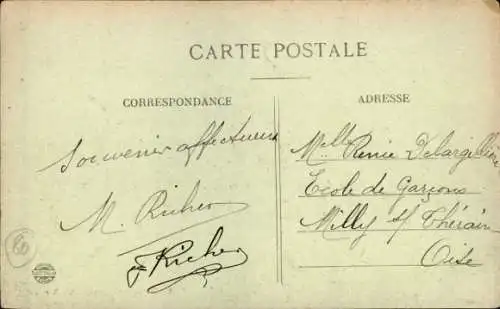 CARTE POSTALE
CORRESPONDANCE
ADRESSE
Souvenir affectueux
M. Richer
Richer
Melle Renée Delargillière
Ecole de Garçons
Milly s/ Thérain
Oise